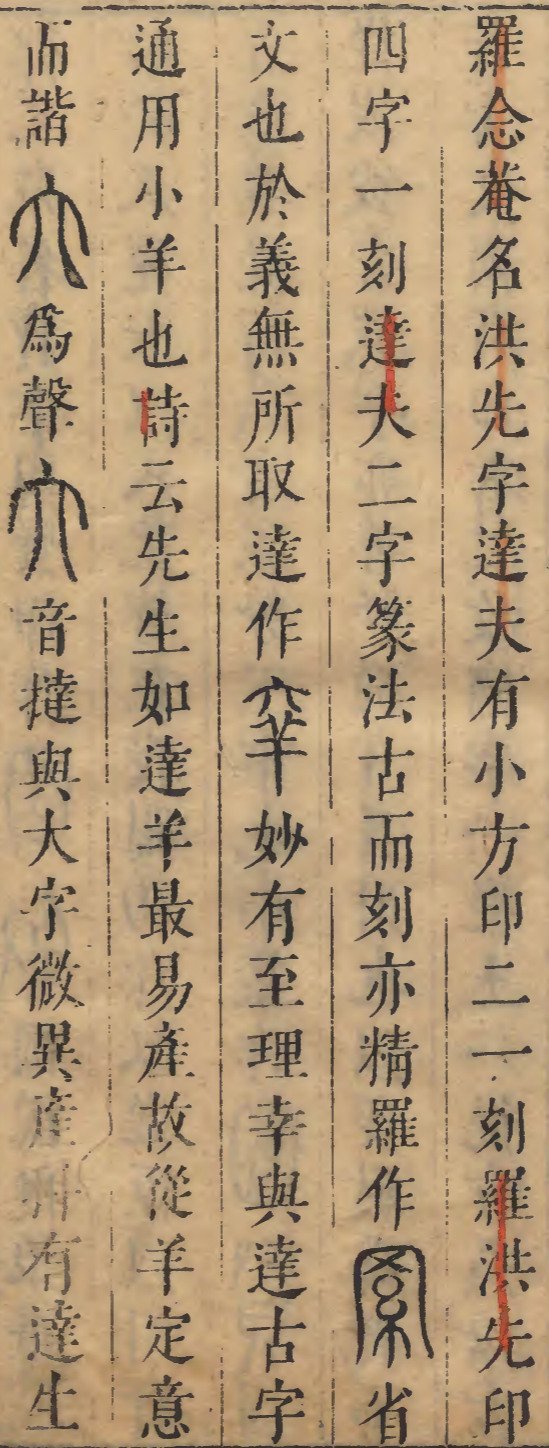 羅念菴名洪先字達夫有小方印二一刻羅洪先印
四字一刻達夫二字篆法古而刻亦精羅作省
文也於義無所取達作羍妙有至理幸與達古字
通用小羊也詩云先生如達羊最易產故從羊定意
而諧𠘲爲聲𠘲音撻與大字微異產𠦑有達生